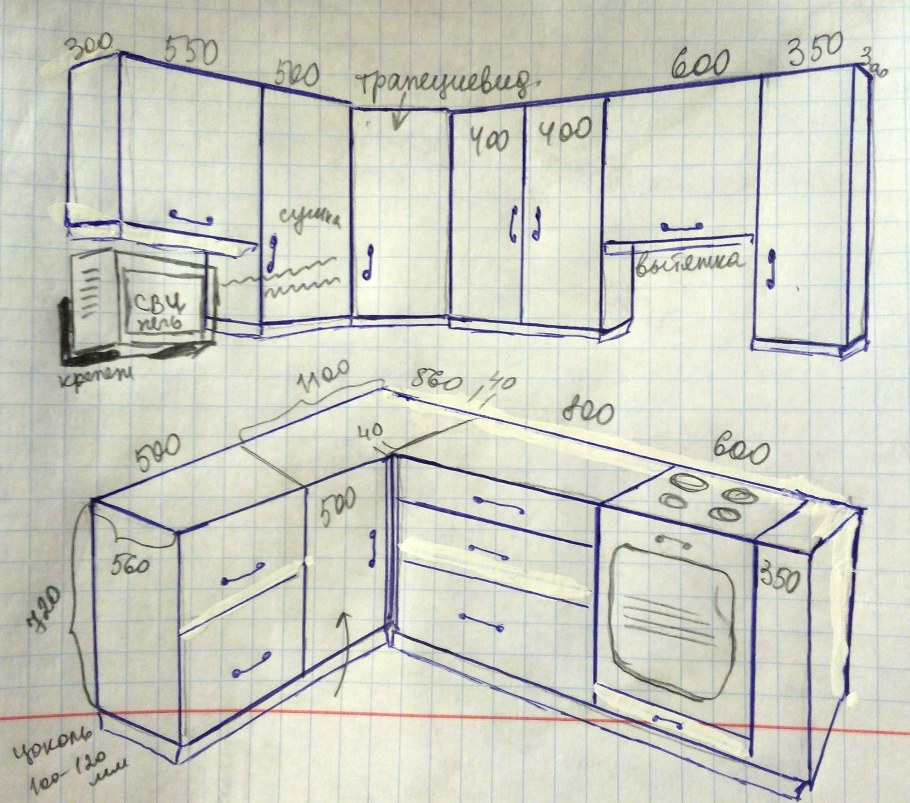 300
550
500
трапециевид.
400
400
600
350
300
сушка
вытяжка
СВЧ
печь
крепеж
1100
860
40
800
600
500
40
500
560
350
720
цоколь
100-120
мм